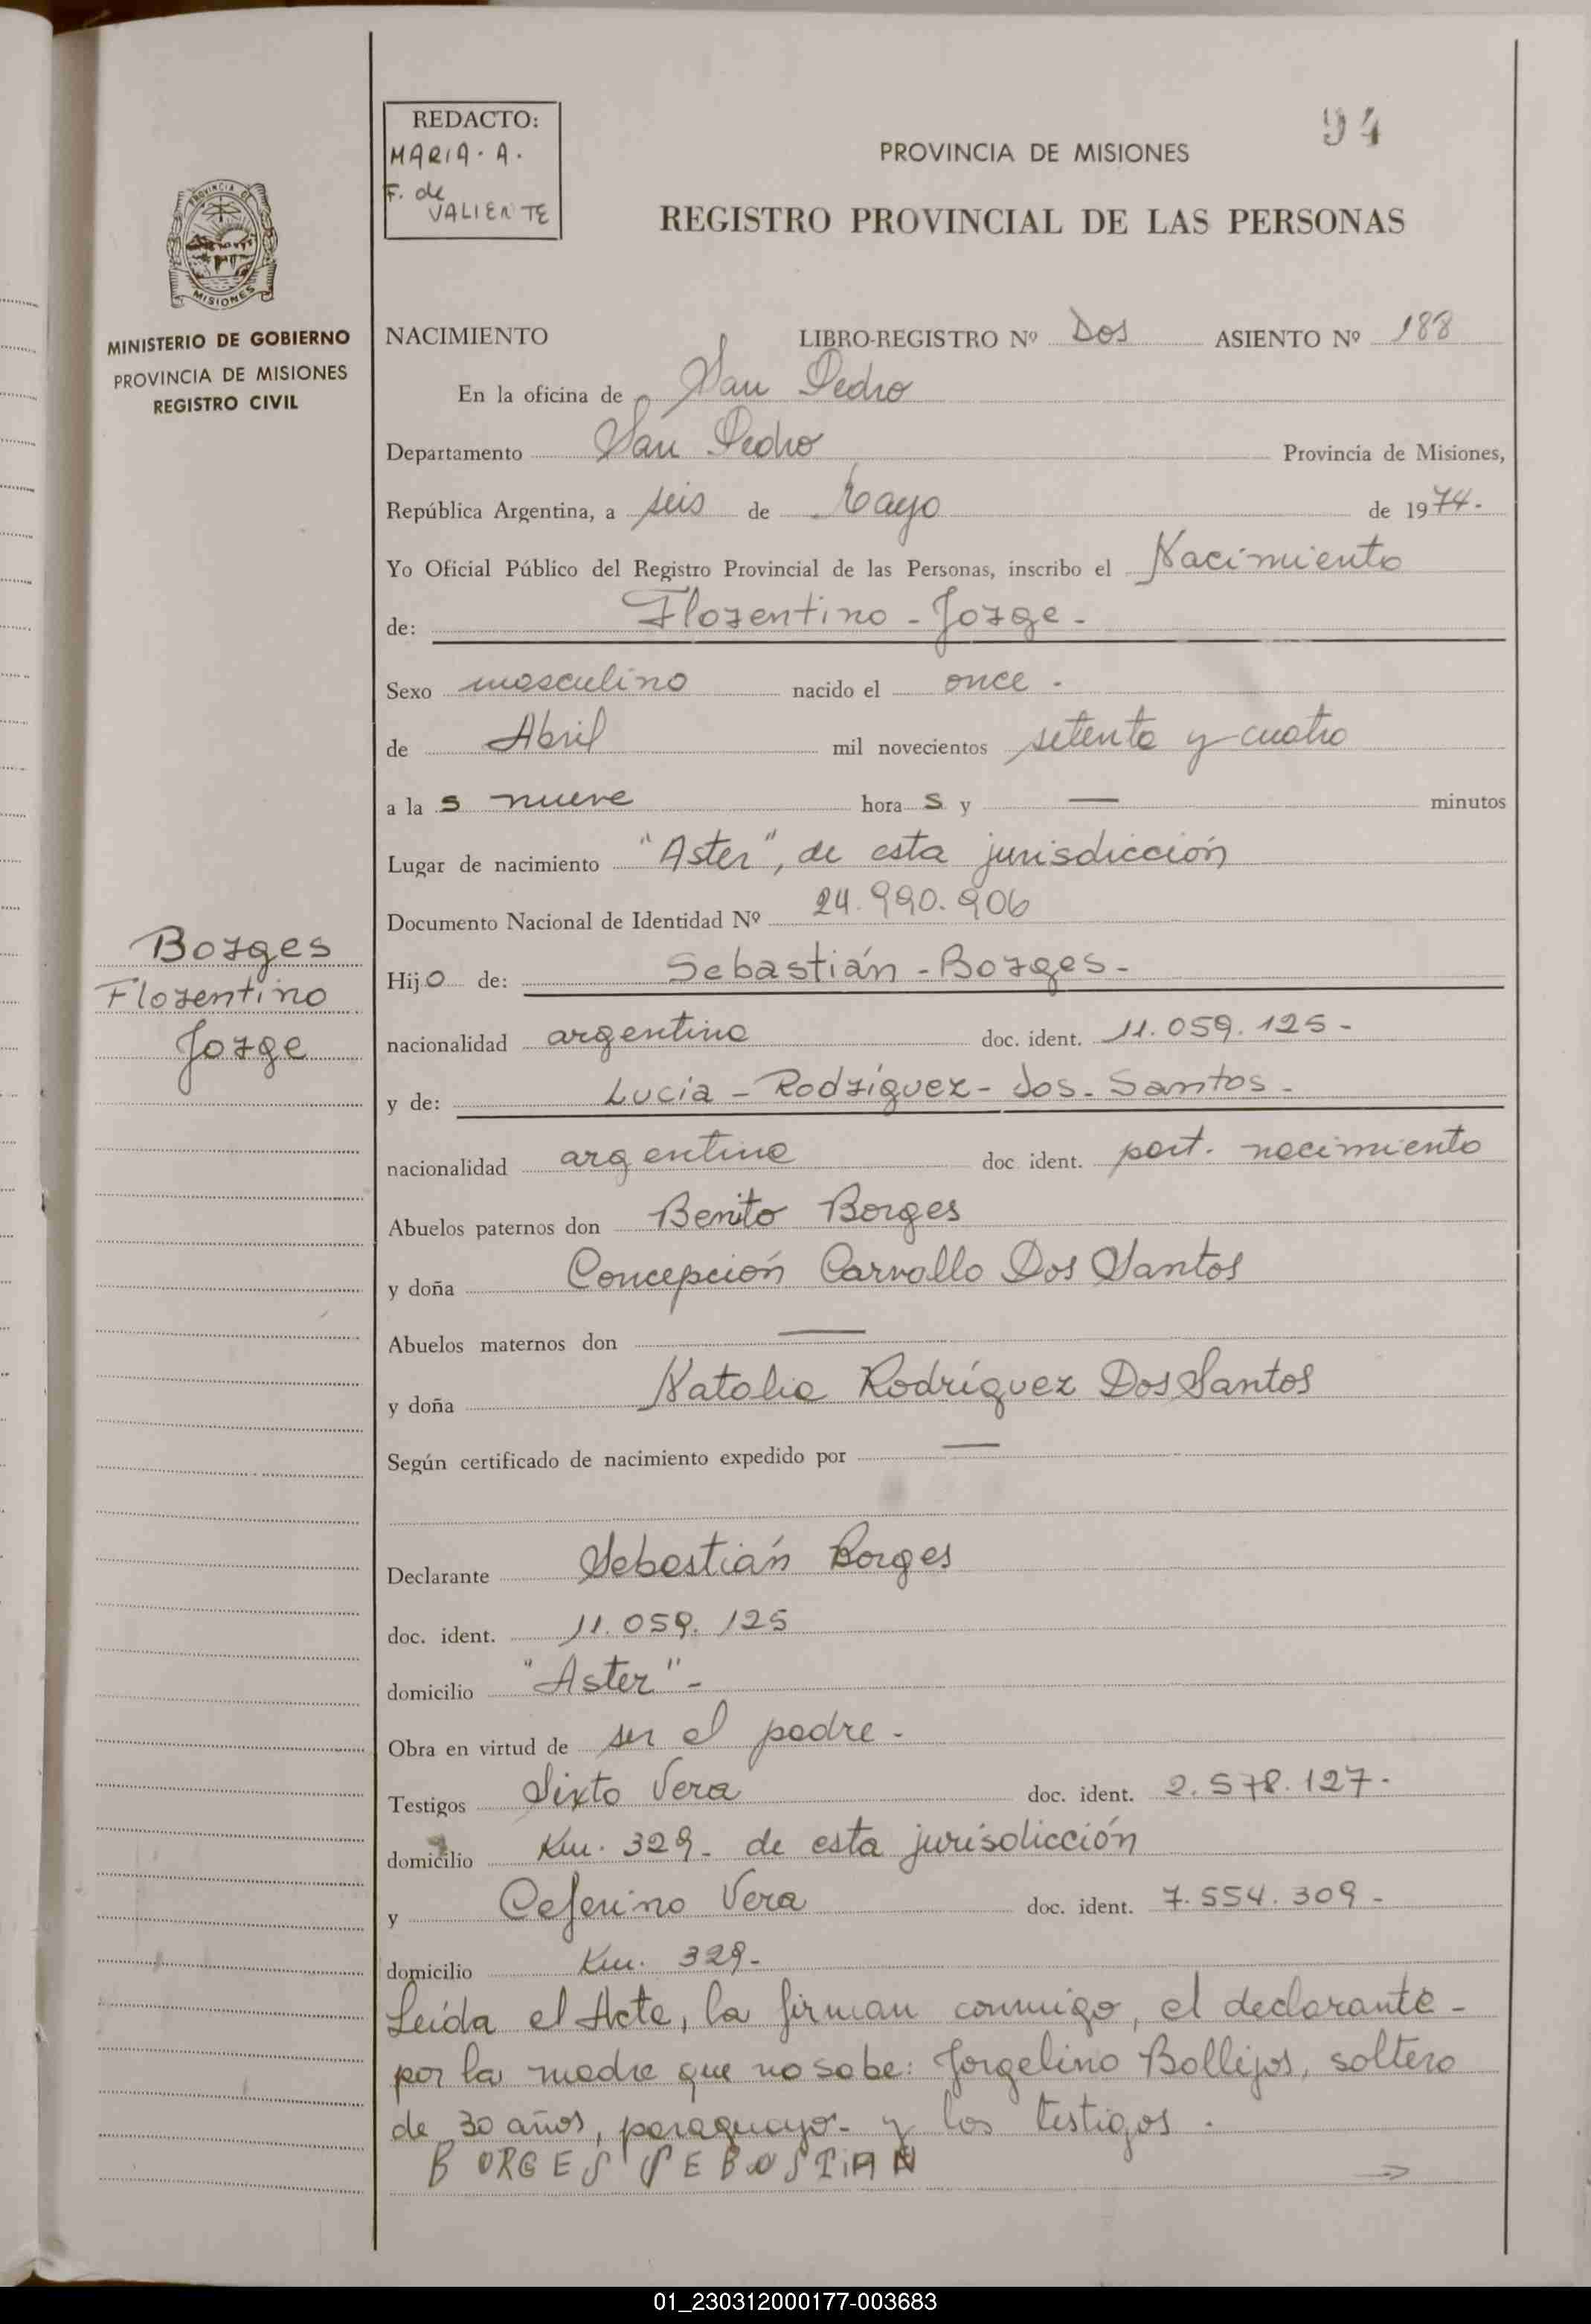 REDACTO:
MARIA. A.
F. de
VALIENTE
94
PROVINCIA DE MISIONES
REGISTRO PROVINCIAL DE LAS PERSONAS
PROVINCIA DE
MISIONES
MINISTERIO DE GOBIERNO
PROVINCIA DE MISIONES
REGISTRO CIVIL
NACIMIENTO LIBRO-REGISTRO Nº Dos ASIENTO Nº 188
En la oficina de San Pedro
Departamento San Pedro Provincia de Misiones,
República Argentina, a seis de Mayo de 1974.-
Yo Oficial Público del Registro Provincial de las Personas, inscribo el Nacimiento
de: Florentino - Jorge -
Sexo masculino nacido el once -
de Abril mil novecientos setenta y cuatro
a la s nueve hora s y — minutos
Lugar de nacimiento "Aster", de esta jurisdicción
Documento Nacional de Identidad Nº 24.990.906
Borges
Florentino
Jorge
Hijo de: Sebastián - Borges -
nacionalidad argentina doc. ident. 11.059.125 -
y de: Lucia - Rodríguez - dos - Santos -
nacionalidad argentina doc ident. part. nacimiento
Abuelos paternos don Benito Borges
y doña Concepción Carvallo Dos Santos
Abuelos maternos don —
y doña Natalia Rodríguez Dos Santos
Según certificado de nacimiento expedido por —
Declarante Sebastián Borges
doc. ident. 11.059.125
domicilio "Aster" -
Obra en virtud de ser el padre -
Testigos Sixto Vera doc. ident. 2.578.127 -
domicilio Km. 329 - de esta jurisdicción
y Ceferino Vera doc. ident. 7.554.309 -
domicilio Km. 329 -
Leída el Acta, la firman conmigo, el declarante -
por la madre que no sabe: Jorgelino Bollijos, soltero
de 30 años, paraguayo - y los testigos -
BORGES SEBOSTIAN
01_230312000177-003683